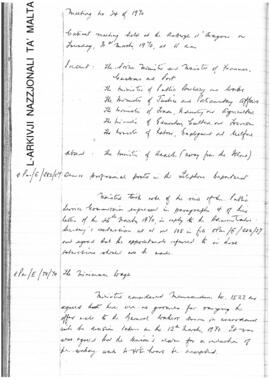 L-ARKIVJI NAZZJONALI TA' MALTA
Meeting no 24 of 1970
Cabinet meeting held at the Auberge d'Aragon on
Tuesday, 31st March, 1970, at 11 a.m.
Present: The Prime Minister and Minister of Finance,
Customs and Port
The Minister of Public Building and Works
The Minister of Justice and Parliamentary Affairs
The Minister of Trade, Industry and Agriculture
The Minister of Education, Culture and Tourism
The Minister of Labour, Employment and Welfare
Absent: The Minister of Health (away from the Island)
posts in the Telephone Department
Ministers took note of the views of the Public
Service Commission expressed in paragraph 4 of their
letter of the March, 1970, in reply to the
and agreed that the appointments referred to in those
should be made.
The Minimum Wage
Ministers considered Memorandum No. 1522 and
agreed that there are no grounds for varying the
offer made to the General Workers Union in accordance
with the decision taken on the 12th March, 1970. It was
also agreed that the Union's claim for a reduction of
the working week to 40 hours be accepted.